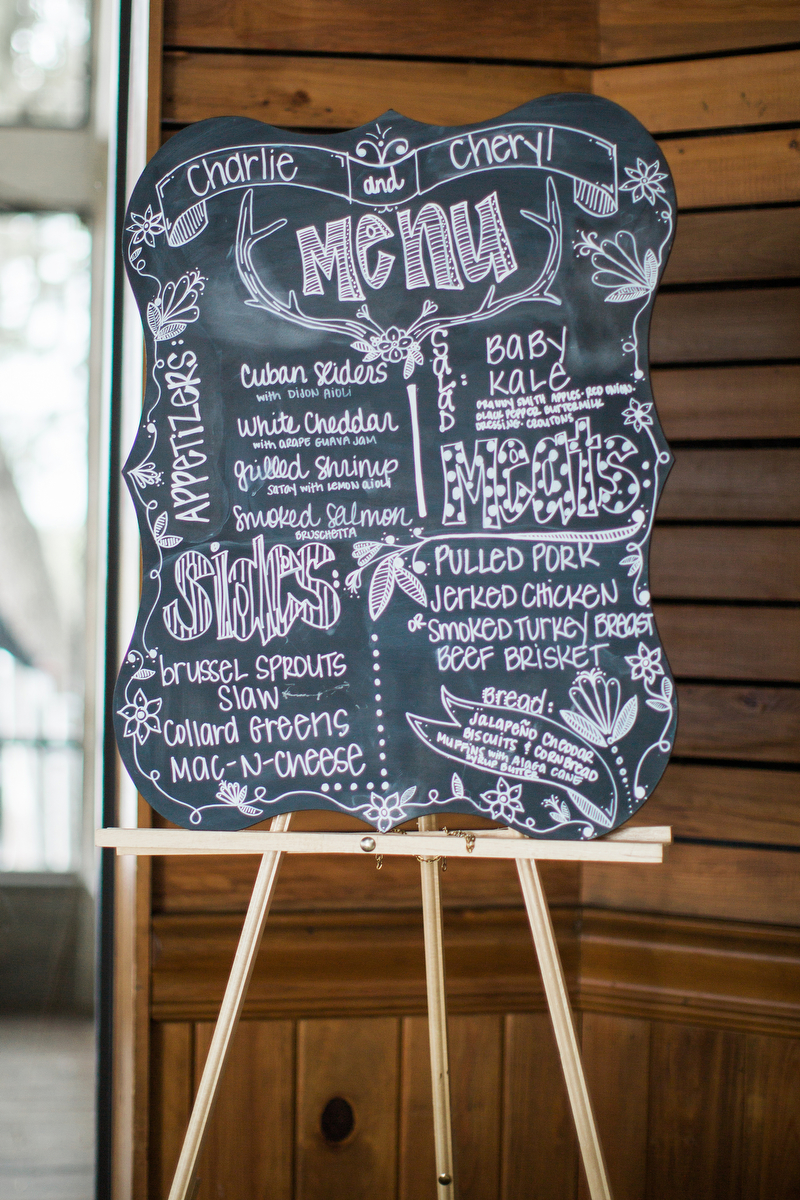 Charlie and Cheryl
Menu
Appetizers:
Cuban Sliders
with DIJON AIOLI
White Cheddar
with GRAPE GUAVA JAM
grilled Shrimp
SATAY with LEMON aioli
Smoked Salmon
BRUSCHETTA
Salad:
Baby
Kale
GRANNY SMITH APPLES · RED ONION ·
BLACK PEPPER BUTTERMILK
DRESSING · CROUTONS
Meats
PULLED PORK
JERKED CHICKEN
or SMOKED TURKEY BREAST
BEEF BRISKET
Sides:
brussel SPROUTS
SLAW
Collard Greens
Mac-N-Cheese
Bread:
JALAPEÑO CHEDDAR
BISCUITS & CORNBREAD
MUFFINS with ALAGA CANE
SYRUP BUTTER